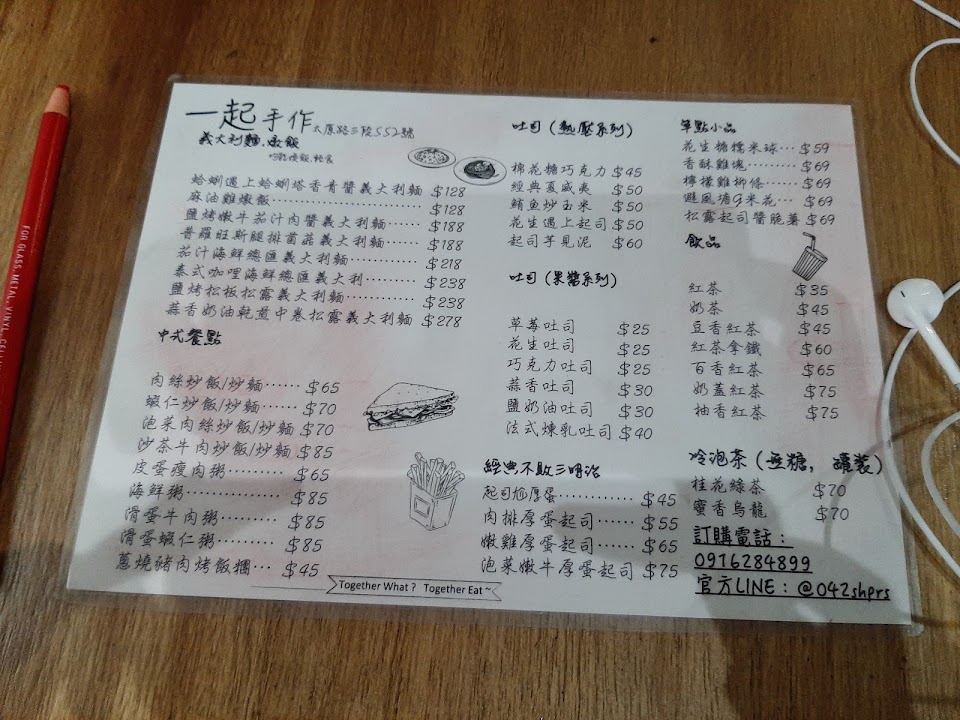 一起手作 太原路三段552號
義大利麵.燉飯
蛤蜊遇上蛤蜊塔香青醬義大利麵 $128
麻油雞燉飯 $128
鹽烤嫩牛茄汁肉醬義大利麵 $188
普羅旺斯腿排菌菇義大利麵 $188
茄汁海鮮總匯義大利麵 $218
泰式咖哩海鮮總匯義大利 $238
鹽烤松板松露義大利麵 $238
蒜香奶油乾煎中卷松露義大利麵 $278
中式餐點
肉絲炒飯/炒麵 $65
蝦仁炒飯/炒麵 $70
泡菜肉絲炒飯/炒麵 $70
沙茶牛肉炒飯/炒麵 $85
皮蛋瘦肉粥 $65
海鮮粥 $85
滑蛋牛肉粥 $85
滑蛋蝦仁粥 $85
蔥燒豬肉烤飯糰 $45
Together What? Together Eat~
吐司(熱壓系列)
棉花糖巧克力 $45
經典夏威夷 $50
鮪魚炒玉米 $50
花生遇上起司 $50
起司芋見泥 $60
吐司(果醬系列)
草莓吐司 $25
花生吐司 $25
巧克力吐司 $25
蒜香吐司 $30
鹽奶油吐司 $30
法式煉乳吐司 $40
經典不敗三明治
起司尬厚蛋 $45
肉排厚蛋起司 $55
嫩雞厚蛋起司 $65
泡菜嫩牛厚蛋起司 $75
單點小品
花生糖糯米球 $59
香酥雞塊 $69
檸檬雞柳條 $69
避風塘QQ米花 $69
松露起司醬脆薯 $69
飲品
紅茶 $35
奶茶 $45
豆香紅茶 $45
紅茶拿鐵 $60
百香紅茶 $65
奶蓋紅茶 $75
柚香紅茶 $75
冷泡茶(無糖, 罐裝)
桂花綠茶 $70
蜜香烏龍 $70
訂購電話:
0916284899
官方LINE:@042shprs
FOR GLASS, METAL, VINYL, CELL